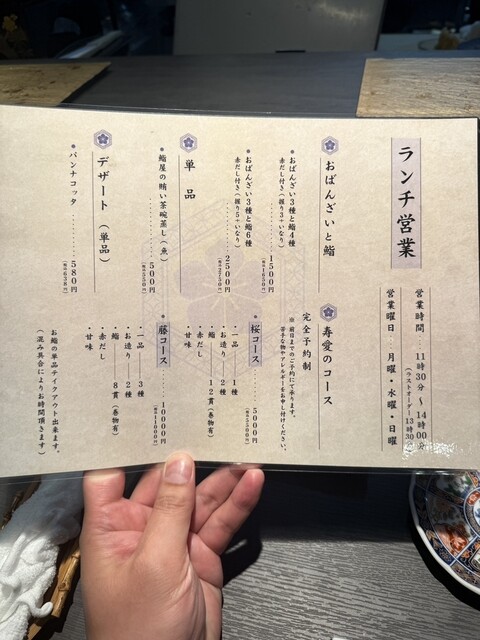 ランチ営業
営業時間 11時30分 〜 14時00分
(ラストオーダー13時30分)
営業曜日 月曜・水曜・日曜
おばんざいと鮨
*おばんざい3種と鮨4種
赤だし付き(握り3+いなり)
1500円
(税込1650円)
*おばんざい3種と鮨6種
赤だし付き(握り5+いなり)
2500円
(税込2750円)
単品
*鮨屋の賄い茶碗蒸し(魚)
500円
(税込550円)
デザート(単品)
*パンナコッタ
580円
(税込638円)
寿愛のコース
完全予約制
※前日までのご予約にて承ります。
苦手な物やアレルギーをお申し付けください。
*桜コース 5000円
(税込5500円)
・一品 1種
・お造り 2種
・鮨 12貫(巻物有)
・赤だし
・甘味
*藤コース 10000円
(税込11000円)
・一品 3種
・お造り 2種
・鮨 8貫(巻物有)
・赤だし
・甘味
お鮨の単品テイクアウト出来ます。
(混み具合によりお時間頂きます)